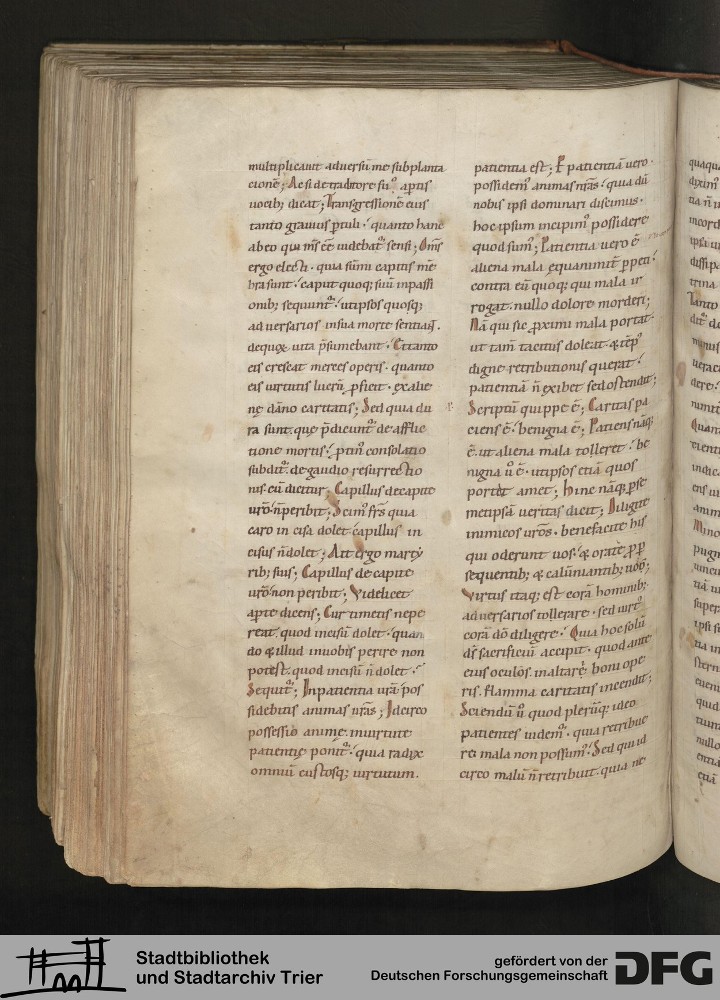 multiplicauit aduersū me supplanta
cionē; Ac si de traditore suo aptis
uocib; dicat; Transgressionē eius
tanto grauius ptuli. quanto hanc
ab eo qui m̄s eē uidebat᷑ sensi; Om̄s
ergo electi. quia sūmi capitis mē
bra sunt. caput quoq; suū in passi
onib; sequunt᷑. ut ipsos quosq;
aduersarios in sua morte sentiaɴ̄.
de quoꝝ uita p̄sumebant. Et tanto
eis crescat merces operis. quanto
eis uirtutis lucrū pficit. ex alie
nę dāno caritatis; Sed quia du
ra sunt. quę p̄dicunt᷑ de afflic
tione mortis. ptin᷒ consolatio
subdit᷑ de gaudio resurrectio
nis. cū dicitur; Capillus de capite
uro n̄ peribit; Scim᷒ frs̄ quia
caro incisa dolet. capillus in
cisus n̄ dolet; Ait ergo marty
rib; suis; Capillus de capite
uro non peribit; Videlicet
apte dicens; Cur timetis ne pe
reat. quod incisū dolet. quan
do & illud in uobis perire non
potest. quod incisū n̄ dolet.
Sequit᷑; In patientia urā pos
sidebitis animas nrās; Idcirco
possessio animę. in uirtute
patientię ponit᷑. quia radix
omniū custosq; uirtutum.
patientia est; P patientiā uero.
possidem᷒ animas nrās. quia dū
nobis ipsi dominari discimus.
hoc ipsum incipim᷒ possidere
quod sum᷒; Patientia uero ē
aliena mala equanimit̄ ppeti.
contra eū quoq; qui mala ir
rogat. nullo dolore morderi;
Nā qui sic pximi mala portat.
ut tam̄ tacitus doleat. & temp᷒
digne retributionis querat.
patientiā n̄ exibet sed ostendit;
Scriptū quippe ē; Caritas pa
ciens ē. benigna ē; Patiens nāq;
ē. ut aliena mala tolleret. be
nigna ů ē. ut ipsos etiā quos
portet amet; Hinc nāq; p se
metipsā ueritas dicit; Diligite
inimicos urōs. benefacite his
qui oderunt uos. & orate p p
sequentib; & calūniantib; uob̄;
Virtus itaq; est corā hominib;
aduersarios tollerare. sed uirt᷒
corā dō diligere. Quia hoc solū
ds̄ sacrificiū accipit. quod ante
eius oculos. in altarę boni ope
ris. flamma caritatis incendit;
Sciendū ů quod plerūq; ideo
patientes uidem᷒. quia retribue
re mala non possum᷒. Sed qui id
circo malū n̄ retribuit. quia ne
Stadtbibliothek
und Stadtarchiv Trier
gefördert von der
Deutschen Forschungsgemeinschaft
DFG